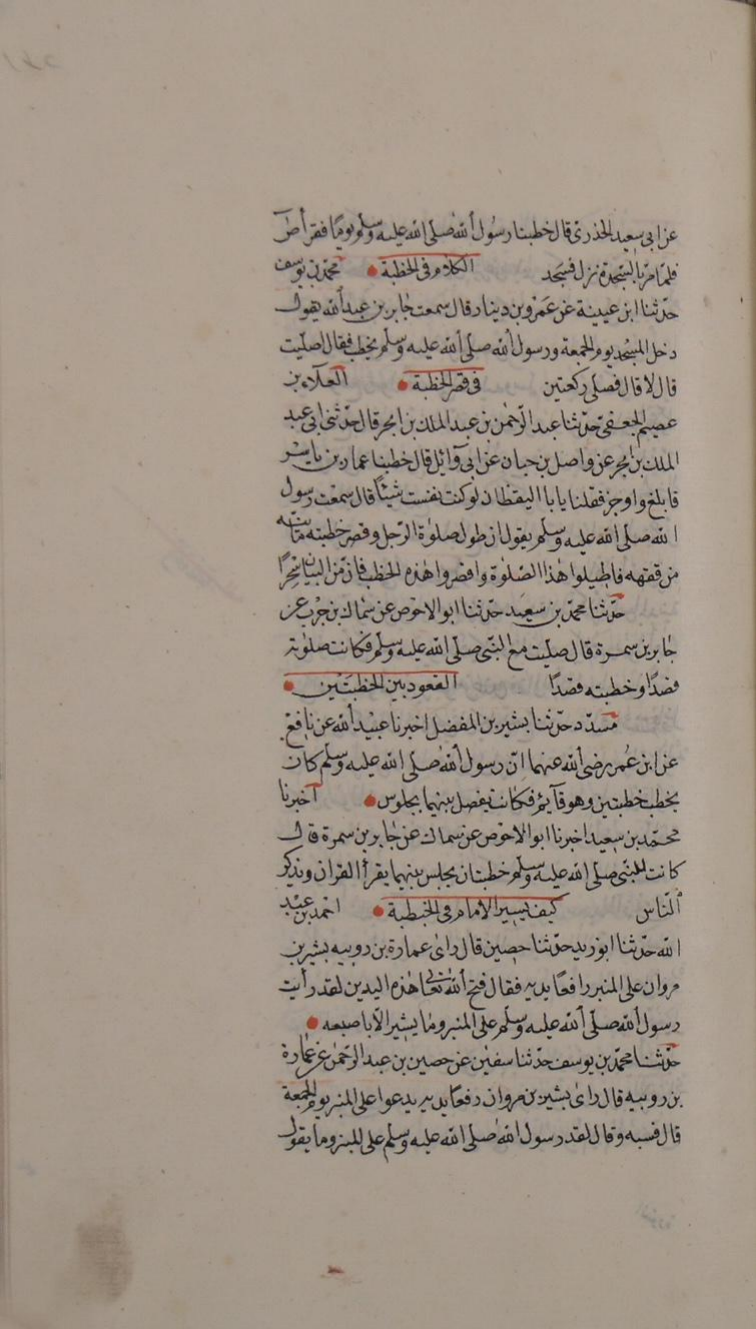 عن ابى سعيد الخدرى قال خطبنا رسول الله صلى الله عليه وسلم يوما فقرأ ص
فلما مر بالسجدة نزل فسجد الكلام فى الخطبة محمد بن يوسف
حدثنا ابن عيينة عن عمرو بن دينار قال سمعت جابر بن عبد الله يقول
دخل المسجد يوم الجمعة ورسول الله صلى الله عليه وسلم يخطب فقال اصليت
قال لا قال فصلى ركعتين فى قصر الخطبة العلاء بن
عصيم الجعفى حدثنا عبد الرحمن بن عبد الملك بن ابجر قال حدثنى ابى عبد
الملك بن ابجر عن واصل بن حيان عن ابى وآئل قال خطبنا عمار بن ياسر
فابلغ واوجز فقلنا يابا اليقظان لو كنت نفست شيئا قال سمعت رسول
الله صلى الله عليه وسلم يقول ان طول صلوة الرجل وقصر خطبته مئنة
من فقهه فاطيلوا هذا الصلوة واقصروا هذه الخطب فان من البيان سحرا
حدثنا محمد بن سعيد حدثنا ابو الاحوص عن سماك بن حرب عن
جابر بن سمرة قال صليت مع النبى صلى الله عليه وسلم فكانت صلوته
قصدا وخطبته قصدا القعود بين الخطبتين
مسدد حدثنا بشير بن المفضل اخبرنا عبيد الله عن نافع
عن ابن عمر رضى الله عنهما ان رسول الله صلى الله عليه وسلم كان
يخطب خطبتين وهو قآيم فكانت يفصل بينهما بجلوس اخبرنا
محمد بن سعيد اخبرنا ابو الاحوص عن سماك عن جابر بن سمرة قال
كانت للنبى صلى الله عليه وسلم خطبتان يجلس بينهما يقرأ القران ويذكر
الناس كيف يسير الامام فى الخطبة احمد بن عبد
الله حدثنا ابو زبيد حدثنا حصين قال راى عمارة بن رويبه بشير بن
مروان على المنبر رافعا يديه فقال قبح الله تعالى هذه اليدين لقد رأيت
رسول الله صلى الله عليه وسلم على المنبر وما يشير الا باصبعه
حدثنا محمد بن يوسف حدثنا سفين عن حصين بن عبد الرحمن عن عمارة
بن رويبه قال راى بشير بن مروان رفعا يديه يدعوا على المنبر يوم الجمعة
قال فسبه وقال لقد رسول الله صلى الله عليه وسلم على المنبر وما يقول